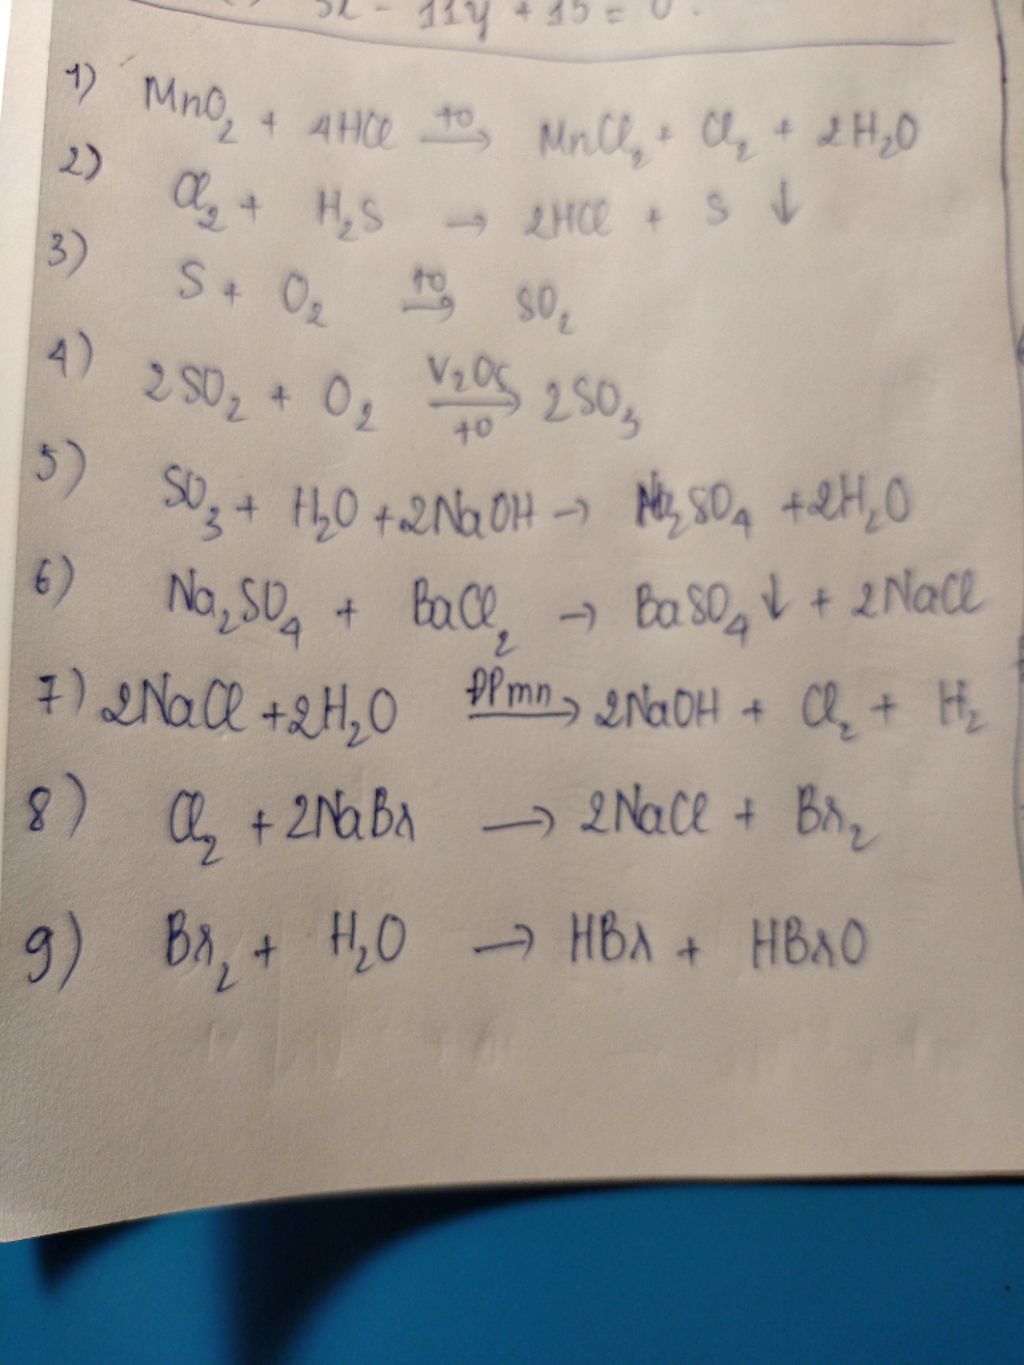 5x - 11y + 15 = 0.
1) MnO₂ + 4HCl →(t°) MnCl₂ + Cl₂ + 2H₂O
2) Cl₂ + H₂S → 2HCl + S ↓
3) S + O₂ →(t°) SO₂
4) 2SO₂ + O₂ →(V₂O₅, t°) 2SO₃
5) SO₃ + H₂O + 2NaOH → Na₂SO₄ + 2H₂O
6) Na₂SO₄ + BaCl₂ → BaSO₄↓ + 2NaCl
7) 2NaCl + 2H₂O →(ĐPmn) 2NaOH + Cl₂ + H₂
8) Cl₂ + 2NaBr → 2NaCl + Br₂
9) Br₂ + H₂O → HBr + HBrO